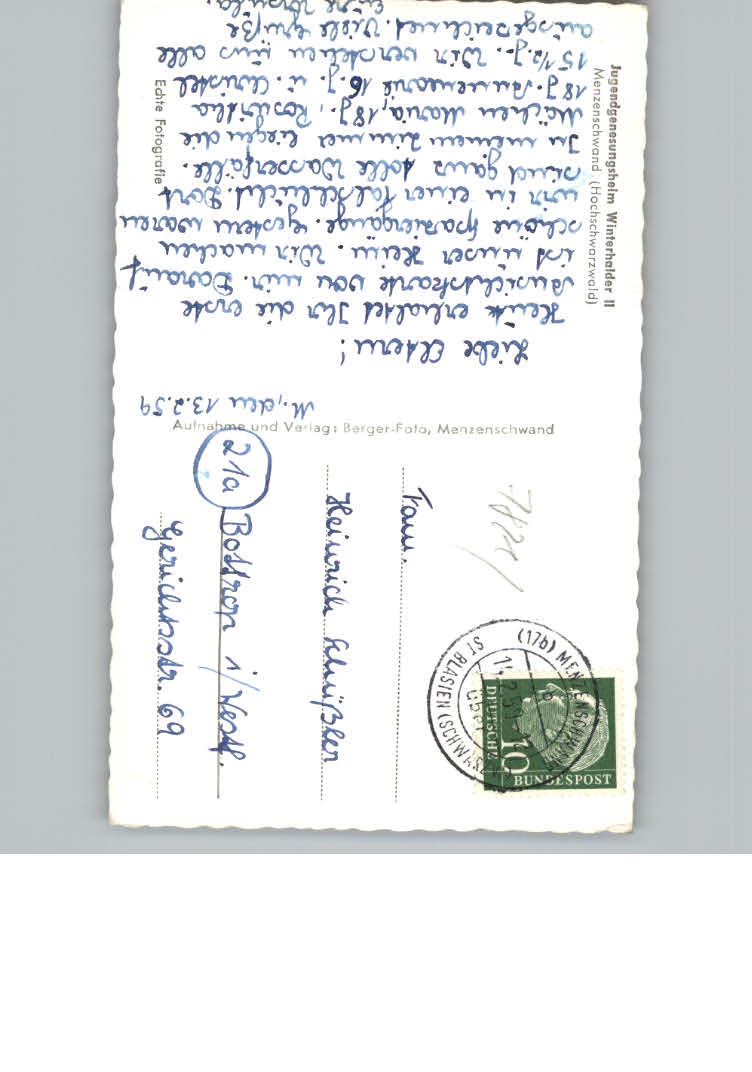 Jugendgenesungsheim Winterhalder II
Menzenschwand (Hochschwarzwald)
M., den 13.2.59
Liebe Eltern!
Heute erhaltet Ihr die erste
Ansichtskarte von mir. Darauf
ist unser Heim. Wir machen
schöne Spaziergänge. Gestern waren
wir in einer Talschlucht. Dort
sind ganz tolle Wasserfälle.
In meinem Zimmer liegen die
Mädchen Maria, 18 J., Roswitha
18 J. Annemarie 16 J. u. Christel
15 1/2 J. Wir verstehen uns alle
ausgezeichnet. Viele Grüße
eure
Echte Fotografie
Aufnahme und Verlag: Berger-Foto, Menzenschwand
7821/
Fam.
Heinrich Schüßler
21a Bottrop i/Westf.
Gerichtsstr. 69
(17b) MENZENSCHWAND
ST BLASIEN (SCHWARZW
14.2.59
DEUTSCHE
BUNDESPOST
10